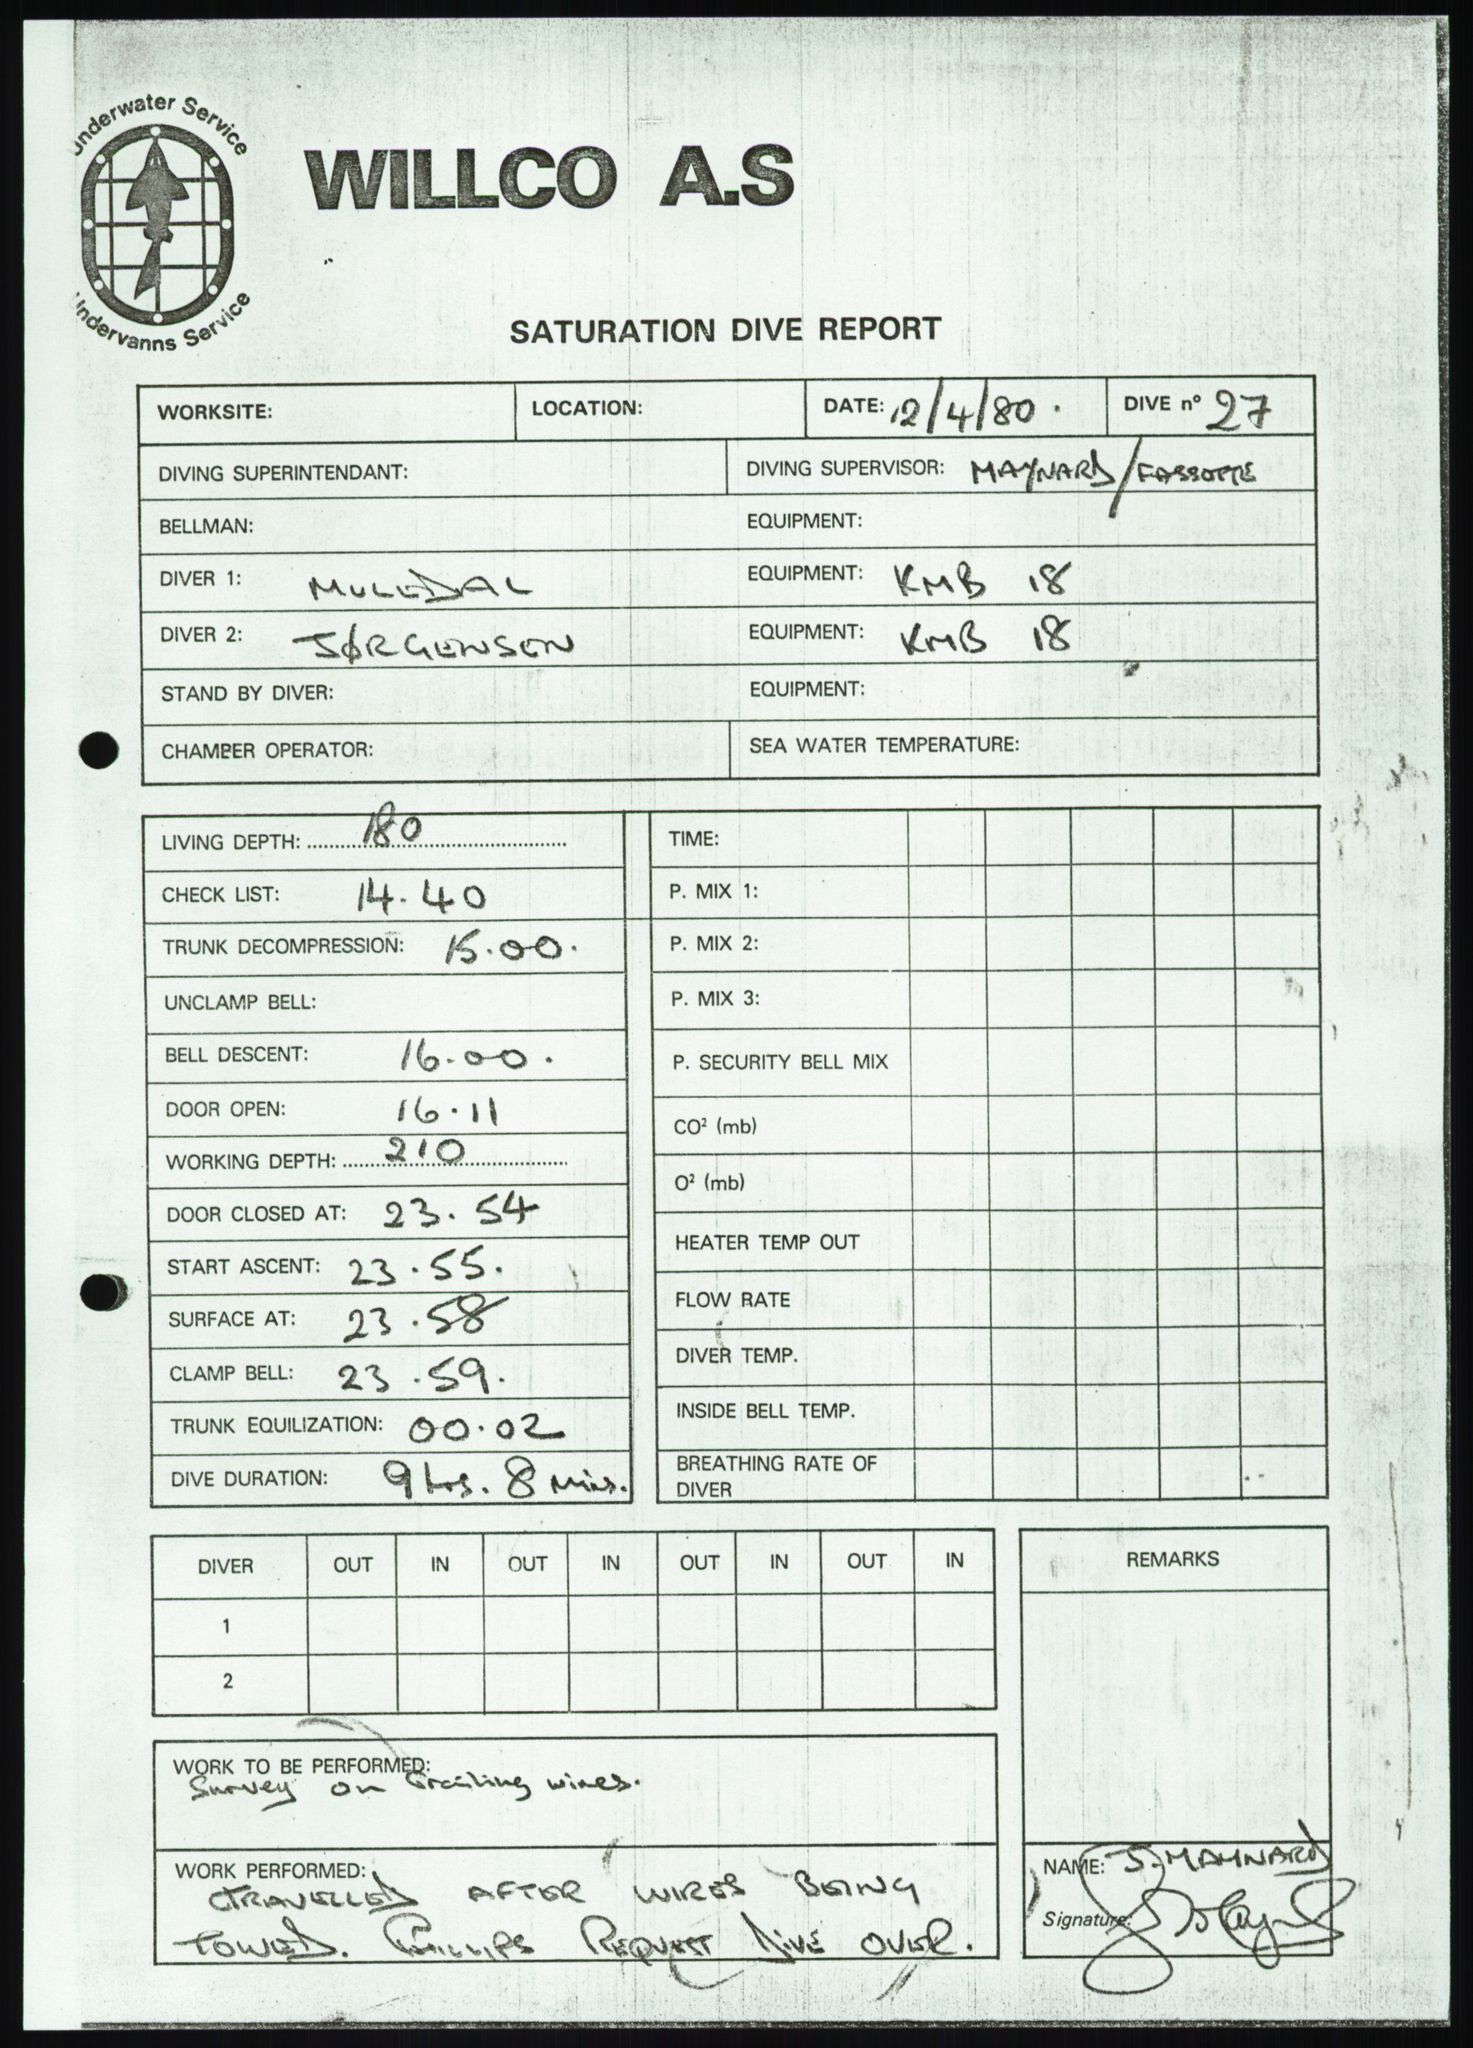 Underwater Service
WILLCO A.S
Undervanns Service
SATURATION DIVE REPORT
WORKSITE: LOCATION: DATE: 12/4/80. DIVE nº 27
DIVING SUPERINTENDANT: DIVING SUPERVISOR: MAYNARD/FASSOTTE
BELLMAN: EQUIPMENT:
DIVER 1: MULEDAL EQUIPMENT: KMB 18
DIVER 2: JØRGENSEN EQUIPMENT: KMB 18
STAND BY DIVER: EQUIPMENT:
CHAMBER OPERATOR: SEA WATER TEMPERATURE:
LIVING DEPTH: 180
CHECK LIST: 14.40
TRUNK DECOMPRESSION: 15.00.
UNCLAMP BELL:
BELL DESCENT: 16.00.
DOOR OPEN: 16.11
WORKING DEPTH: 210
DOOR CLOSED AT: 23.54
START ASCENT: 23.55.
SURFACE AT: 23.58
CLAMP BELL: 23.59.
TRUNK EQUILIZATION: 00.02
DIVE DURATION: 9 hrs. 8 mins.
TIME:
P. MIX 1:
P. MIX 2:
P. MIX 3:
P. SECURITY BELL MIX
CO² (mb)
O² (mb)
HEATER TEMP OUT
FLOW RATE
DIVER TEMP.
INSIDE BELL TEMP.
BREATHING RATE OF
DIVER
DIVER OUT IN OUT IN OUT IN OUT IN
1
2
REMARKS
WORK TO BE PERFORMED:
Survey on trailing wires.
WORK PERFORMED:
TRAVELLED AFTER WIRES BEING
TOWED. PHILLIPS REQUEST DIVE OVER.
NAME: J. MAYNARD
Signature: J Maynard